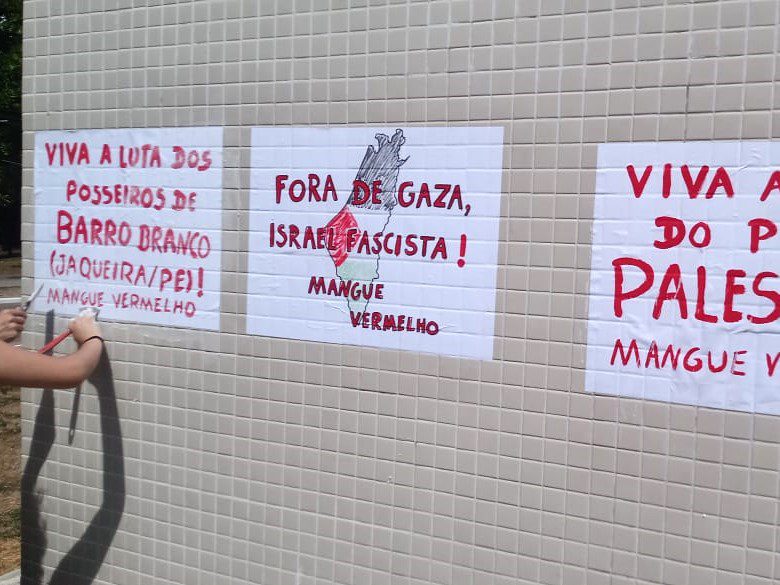 VIVA A LUTA DOS
POSSEIROS DE
BARRO BRANCO
(JAQUEIRA/PE)!
MANGUE VERMELHO
FORA DE GAZA,
ISRAEL FASCISTA!
MANGUE
VERMELHO
VIVA A
DO P
PALES
MANGUE V